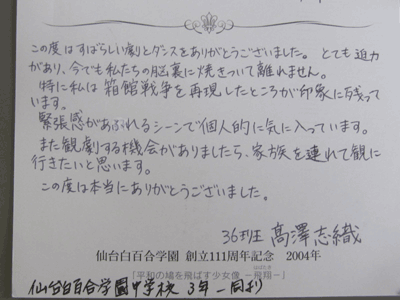 この度はすばらしい劇とダンスをありがとうございました。とても迫力
があり、今でも私たちの脳裏に焼きついて離れません。
特に私は箱館戦争を再現したところが印象に残って
います。
緊張感があふれるシーンで個人的に気に入っています。
また観劇する機会がありましたら、家族を連れて観に
行きたいと思います。
この度は本当にありがとうございました。
36班 高澤志織
仙台白百合学園 創立111周年記念 2004年
「平和の鳩を飛ばす少女像 －飛翔－」
仙台白百合学園中学校 3年一同より